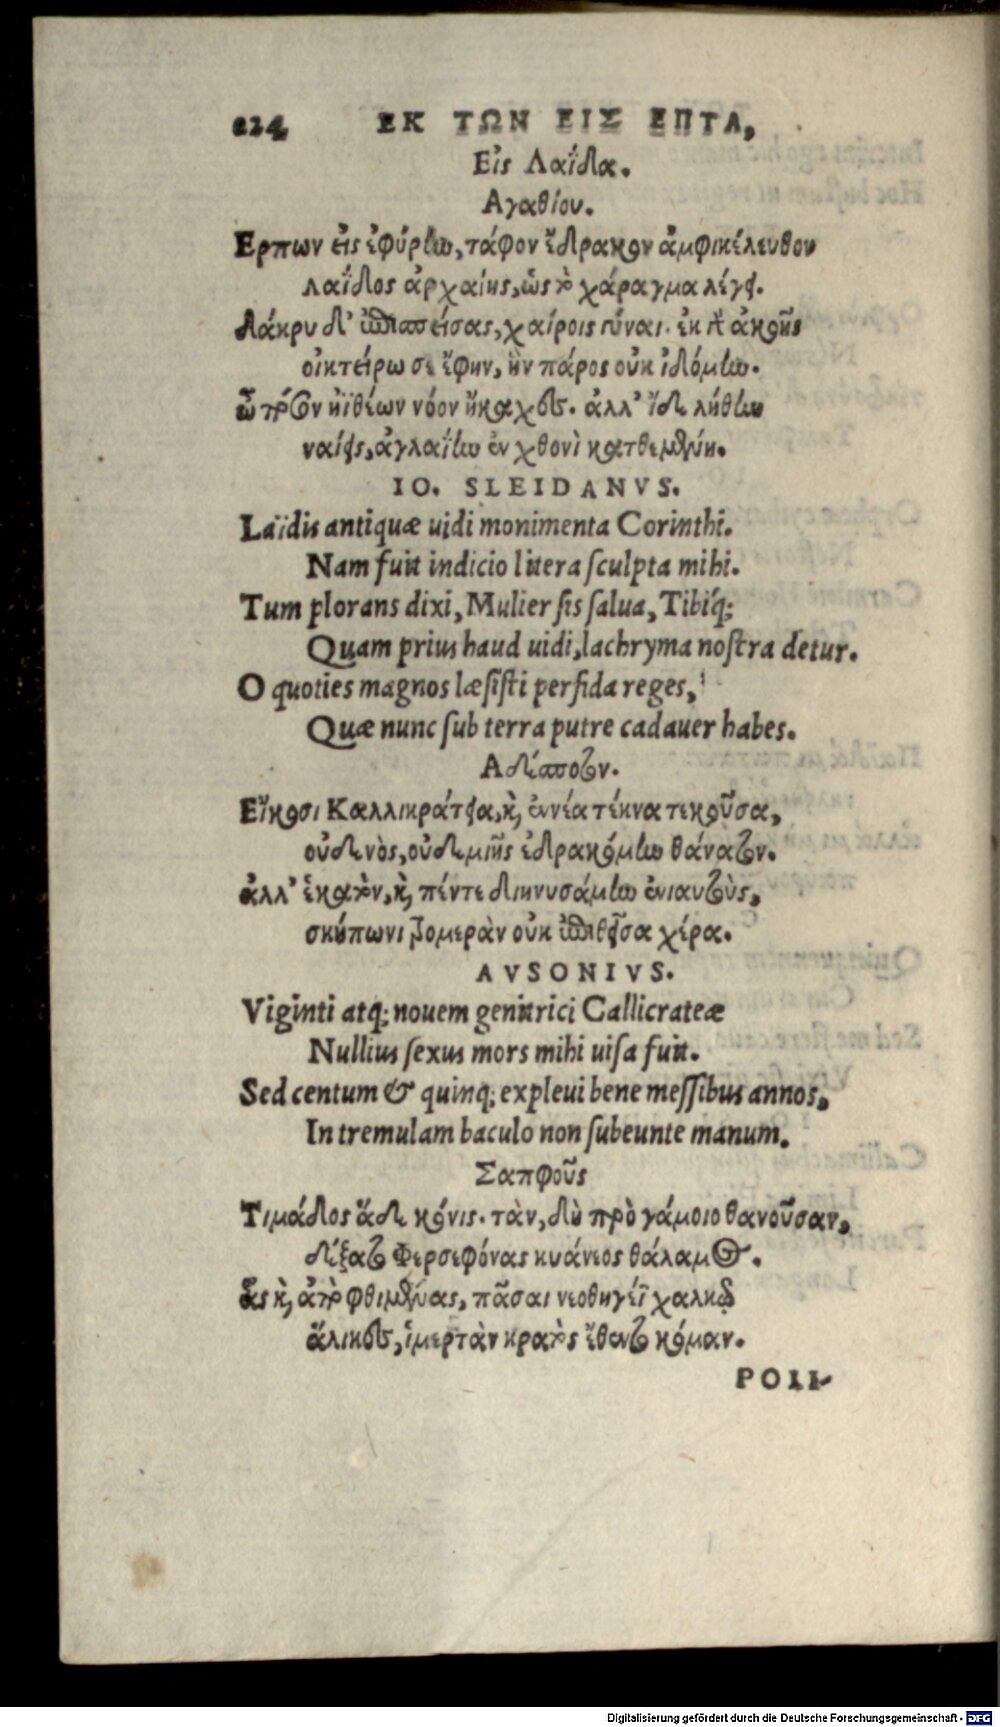 224 ΕΚ ΤΩΝ ΕΙΣ ΕΠΤΑ,
Εἰς Λαΐδα.
Αγαθίου.
Ερπων εἰς ἐφύρην, τάφον ἔδρακον ἀμφικέλευθον
λαΐδος ἀρχαίης, ὡς τὸ χάραγμα λέγει.
δάκρυ δ' ἐπισπείσας, χαίροις γύναι. ἐκ γὰρ ἀκουῆς
οἰκτείρω σε ἔφην, ἣν πάρος οὐκ ἰδόμην.
ὦ πόσον ἠϊθέων νόον ἤκαχες. ἀλλ' ἴδε λήθην
ναίεις, ἀγλαΐην ἐν χθονὶ κατθεμένη.
IO. SLEIDANVS.
Laïdis antiquæ uidi monimenta Corinthi.
Nam fuit indicio litera ſculpta mihi.
Tum plorans dixi, Mulier ſis ſalua, Tibiq́;
Quam prius haud uidi, lachryma noſtra detur.
O quoties magnos læſiſti perfida reges,
Quæ nunc ſub terra putre cadauer habes.
Αδέσποτον.
Εἴκοσι Καλλικράτεια, καὶ ἐννέα τέκνα τεκοῦσα,
οὐδενὸς, οὐδεμιῆς ἐδρακόμην θάνατον.
ἀλλ' ἑκατὸν, καὶ πέντε διηνυσάμην ἐνιαυτοὺς,
σκήπωνι τρομερὰν οὐκ ἐπιθεῖσα χέρα.
AVSONIVS.
Viginti atq; nouem genitrici Callicrateæ
Nullius ſexus mors mihi uiſa fuit.
Sed centum & quinq; expleui bene meſſibus annos,
In tremulam baculo non ſubeunte manum.
Σαπφοῦς
Τιμάδος ἅδε κόνις. τὰν, δὴ πρὸ γάμοιο θανοῦσαν,
δέξατο Φερσεφόνας κυάνεος θάλαμος.
ἇς καὶ ἀπὸ φθιμένας, πᾶσαι νεοθηγέϊ χαλκῷ
ἅλικες, ἱμερτὰν κρατὸς ἔθεντο κόμαν.
POLI-
Digitalisierung gefördert durch die Deutsche Forschungsgemeinschaft - DFG